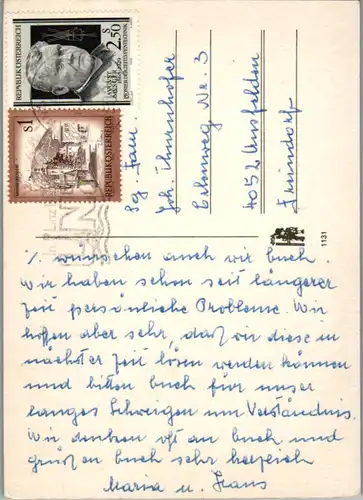 REPUBLIK ÖSTERREICH
S 2.50
S1
REPUBLIK ÖSTERREICH
Fam.
Joh. Thurnhofer
Nr. 3
4052 Ansfelden
Freindorf
1131
1. wünschen auch wir Euch.
Wir haben schon seit längerer
Zeit persönliche Probleme. Wir
hoffen aber sehr, daß wir diese in
nächster Zeit lösen werden können
und bitten Euch für unser
langes Schweigen um Verständnis.
Wir denken oft an Euch und
grüßen Euch sehr herzlich
Maria u. Franz